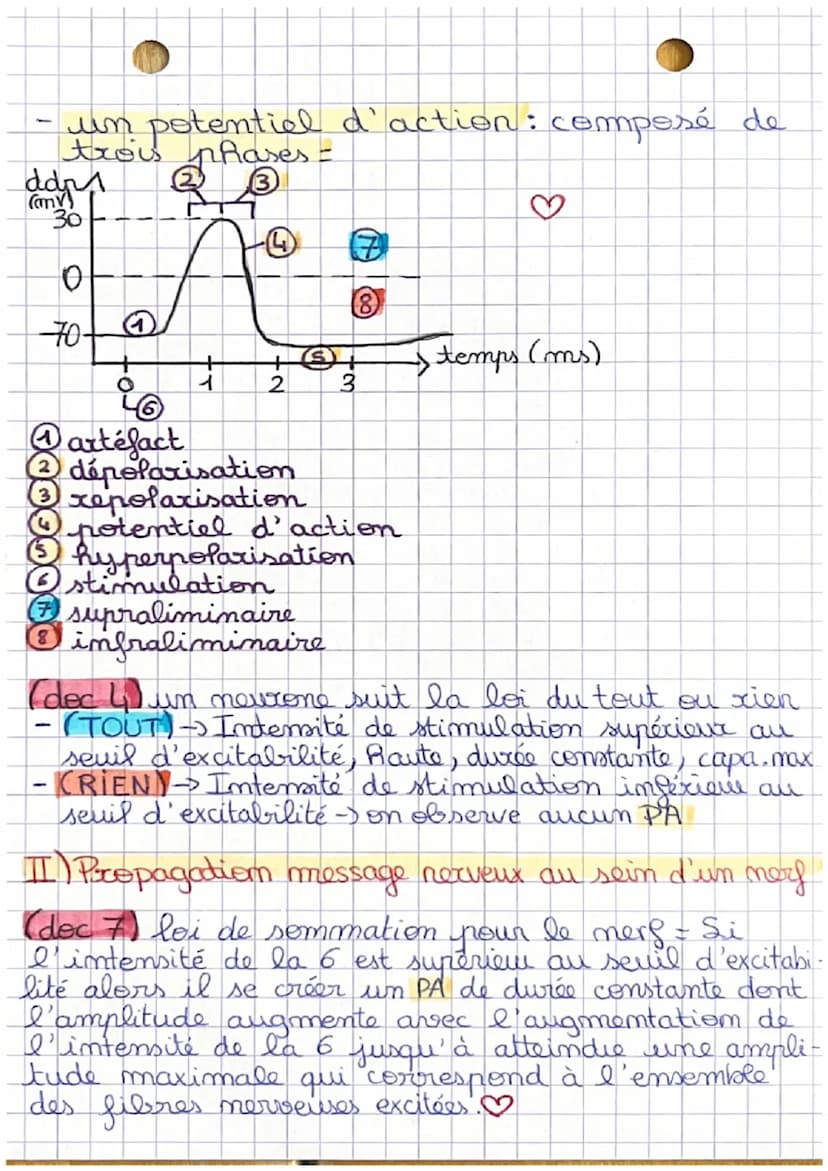 - un potentiel d'action : composé de
trois phases =
ddp
(mV)
② ③
30
④ ⑦
0
⑧
①
-70
⑤ temps (ms)
0 1 2 3
⑥
① artéfact
② dépolarisation
③ repolarisation
④ potentiel d'action
⑤ hyperpolarisation
⑥ stimulation
⑦ supraliminaire
⑧ infraliminaire
(doc 4) un neurone suit la loi du tout ou rien
- (TOUT) -> Intensité de stimulation supérieur au
seuil d'excitabilité, Haute, durée constante, capa.max
- (RIEN) -> Intensité de stimulation inférieur au
seuil d'excitabilité -> on observe aucun PA
II) Propagation message nerveux au sein d'un nerf
(doc 7) loi de sommation pour le nerf = Si
l'intensité de la 6 est supérieur au seuil d'excitabi-
lité alors il se créer un PA de durée constante dont
l'amplitude augmente avec l'augmentation de
l'intensité de la 6 jusqu'à atteindre une ampli-
tude maximale qui correspond à l'ensemble
des fibres nerveuses excitées.